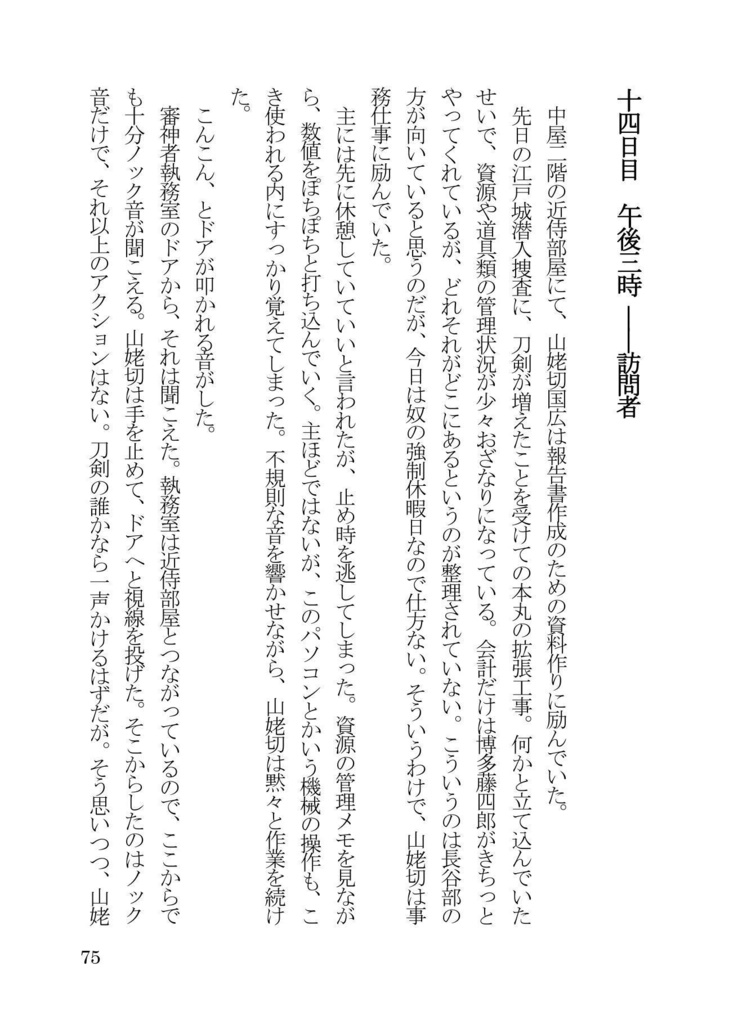 十四日目　午後三時 ――訪問者
中屋二階の近侍部屋にて、山姥切国広は報告書作成のための資料作りに励んでいた。
先日の江戸城潜入捜査に、刀剣が増えたことを受けての本丸の拡張工事。何かと立て込んでいた
せいで、資源や道具類の管理状況が少々おざなりになっている。会計だけは博多藤四郎がきちっと
やってくれているが、どれそれがどこにあるというのが整理されていない。こういうのは長谷部の
方が向いていると思うのだが、今日は奴の強制休暇日なので仕方ない。そういうわけで、山姥切は事
務仕事に励んでいた。
主には先に休憩していていいと言われたが、止め時を逃してしまった。資源の管理メモを見なが
ら、数値をぽちぽちと打ち込んでいく。主ほどではないが、このパソコンとかいう機械の操作も、こ
き使われる内にすっかり覚えてしまった。不規則な音を響かせながら、山姥切は黙々と作業を続け
た。
こんこん、とドアが叩かれる音がした。
審神者執務室のドアから、それは聞こえた。執務室は近侍部屋とつながっているので、ここからで
も十分ノック音が聞こえる。山姥切は手を止めて、ドアへと視線を投げた。そこからしたのはノック
音だけで、それ以上のアクションはない。刀剣の誰かなら一声かけるはずだが。そう思いつつ、山姥
75